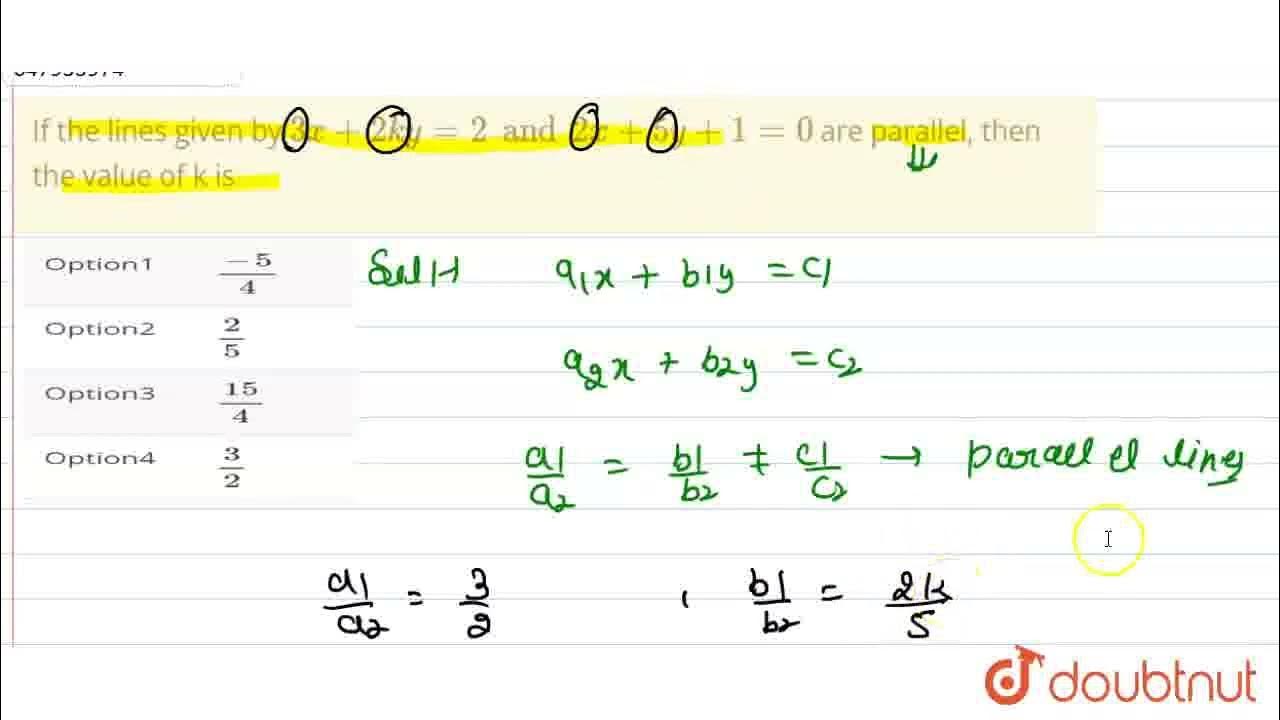 If the lines given by 3x + 2ky = 2 and 2x + 5y + 1 = 0 are parallel, then
the value of k is
Option1 -5/4
Option2 2/5
Option3 15/4
Option4 3/2
a1x + b1y = c1
a2x + b2y = c2
a1/a2 = b1/b2 ≠ c1/c2 → parallel lines
a1/a2 = 3/2 , b1/b2 = 2k/5
doubtnut